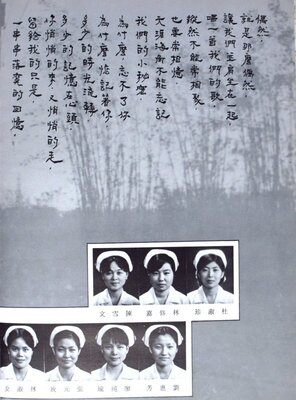 偶然，
就是那麼偶然，
讓我們並肩坐在一起，
唱一首我們的歌
縱然不能常相聚
也要常相憶
天涯海角不能忘記
我們的小秘密
為什麼，忘不了你
為什麼，惦記著你，
多少的時光流轉
多少的記憶在心頭，
你悄悄的來，又悄悄的走，
留給我的只是
一串串落寞的回憶，
文雪陳
嘉修林
珍淑杜
女淑林
次元張
芳惠劉